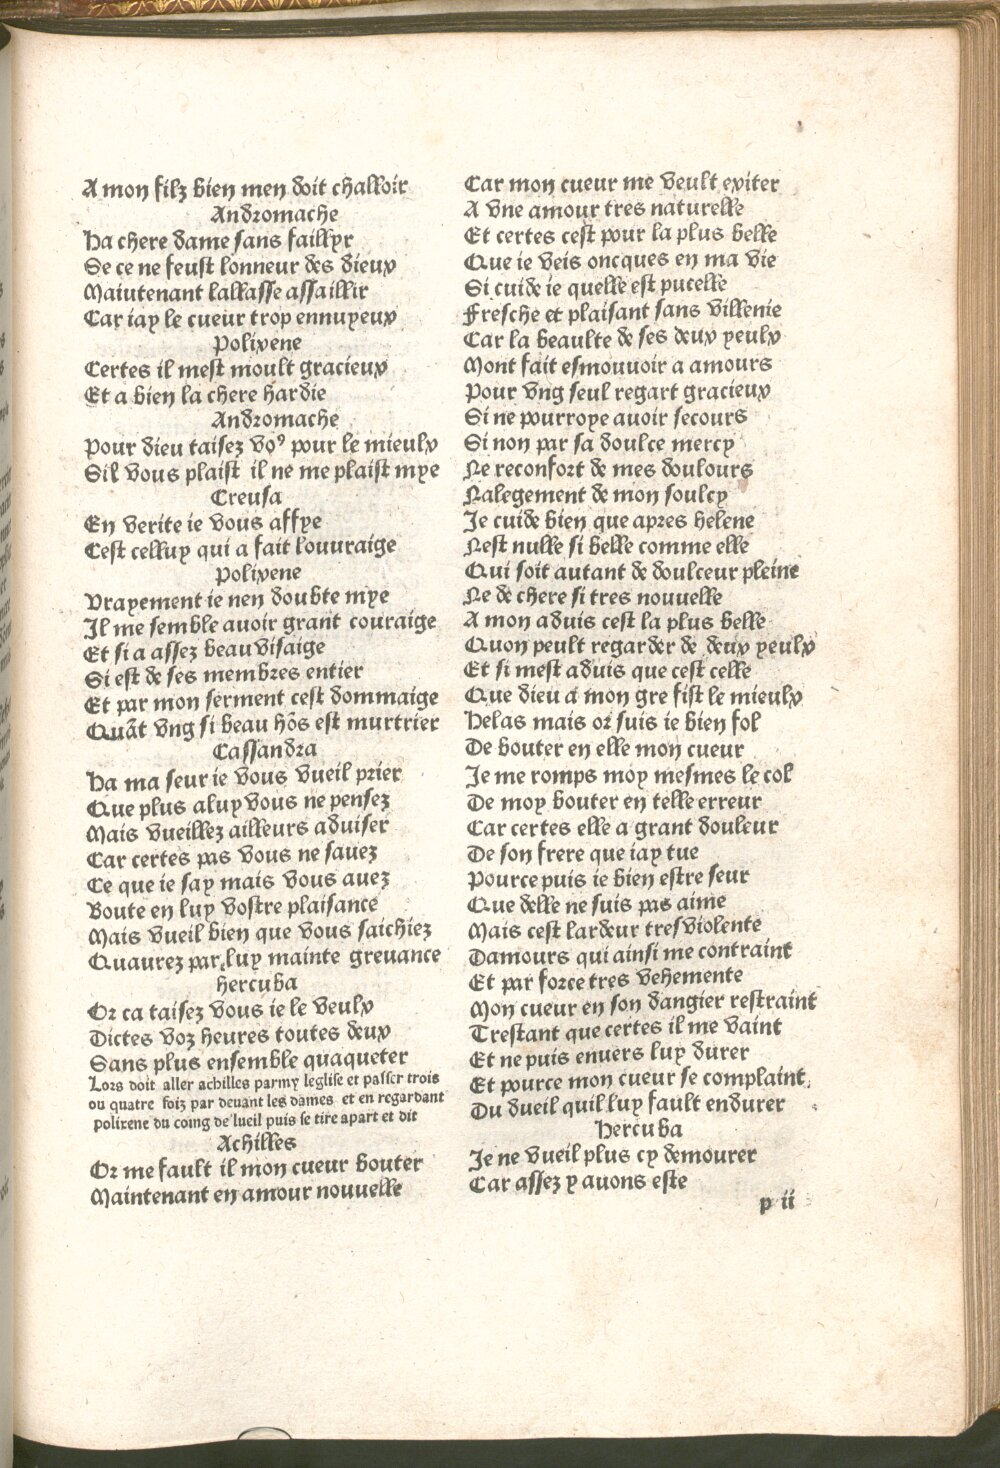 A mon filz bien men doit challoir
Andromache
Ha chere dame sans faillyr
Se ce ne feust lonneur des dieux
Maiutenant lallasse assaillir
Car iay le cueur trop ennuyeux
Polixene
Certes il mest moult gracieux
Et a bien la chere hardie
Andromache
Pour dieu taisez voꝰ pour le mieulx
Sil vous plaist il ne me plaist mye
Creusa
En verite ie vous affye
Cest celluy qui a fait louuraige
Polixene
Vrayement ie nen doubte mye
Il me semble auoir grant couraige
Et si a assez beau visaige
Si est de ses membres entier
Et par mon serment cest dommaige
Quãt vng si beau hõs est murtrier
Cassandra
Ha ma seur ie vous vueil prier
Que plus a luy vous ne pensez
Mais vueillez ailleurs aduiser
Car certes pas vous ne sauez
Ce que ie say mais vous auez
Boute en luy vostre plaisance
Mais vueil bien que vous saichiez
Quaurez par luy mainte greuance
Hercuba
Or ca taisez vous ie le veulx
Dictes voz heures toutes deux
Sans plus ensemble quaqueter
Lors doit aller achilles parmy leglise et passer trois
ou quatre foiz par deuant les dames et en regardant
polixene du coing de lueil puis se tire apart et dit
Achilles
Or me fault il mon cueur bouter
Maintenant en amour nouuelle
Car mon cueur me veult exiter
A vne amour tres naturelle
Et certes cest pour la plus belle
Que ie veis oncques en ma vie
Si cuide ie quelle est pucelle
Fresche et plaisant sans villenie
Car la beaulte de ses deux yeulx
Mont fait esmouuoir a amours
Pour vng seul regart gracieux
Si ne pourroye auoir secours
Si non par sa doulce mercy
Ne reconfort de mes doulours
Nalegement de mon soulcy
Je cuide bien que apres helene
Nest nulle si belle comme elle
Qui soit autant de doulceur pleine
Ne de chere si tres nouuelle
A mon aduis cest la plus belle
Quon peult regarder de deux yeulx
Et si mest aduis que cest celle
Que dieu a mon gre fist le mieulx
Helas mais or suis ie bien fol
De bouter en elle mon cueur
Je me romps moy mesmes le col
De moy bouter en telle erreur
Car certes elle a grant douleur
De son frere que iay tue
Pource puis ie bien estre seur
Que delle ne suis pas aime
Mais cest lardeur tres violente
Damours qui ainsi me contraint
Et par force tres vehemente
Mon cueur en son dangier restraint
Trestant que certes il me vaint
Et ne puis enuers luy durer
Et pource mon cueur se complaint
Du dueil quil luy fault endurer
Hercuba
Je ne vueil plus cy demourer
Car assez y auons este
p ii